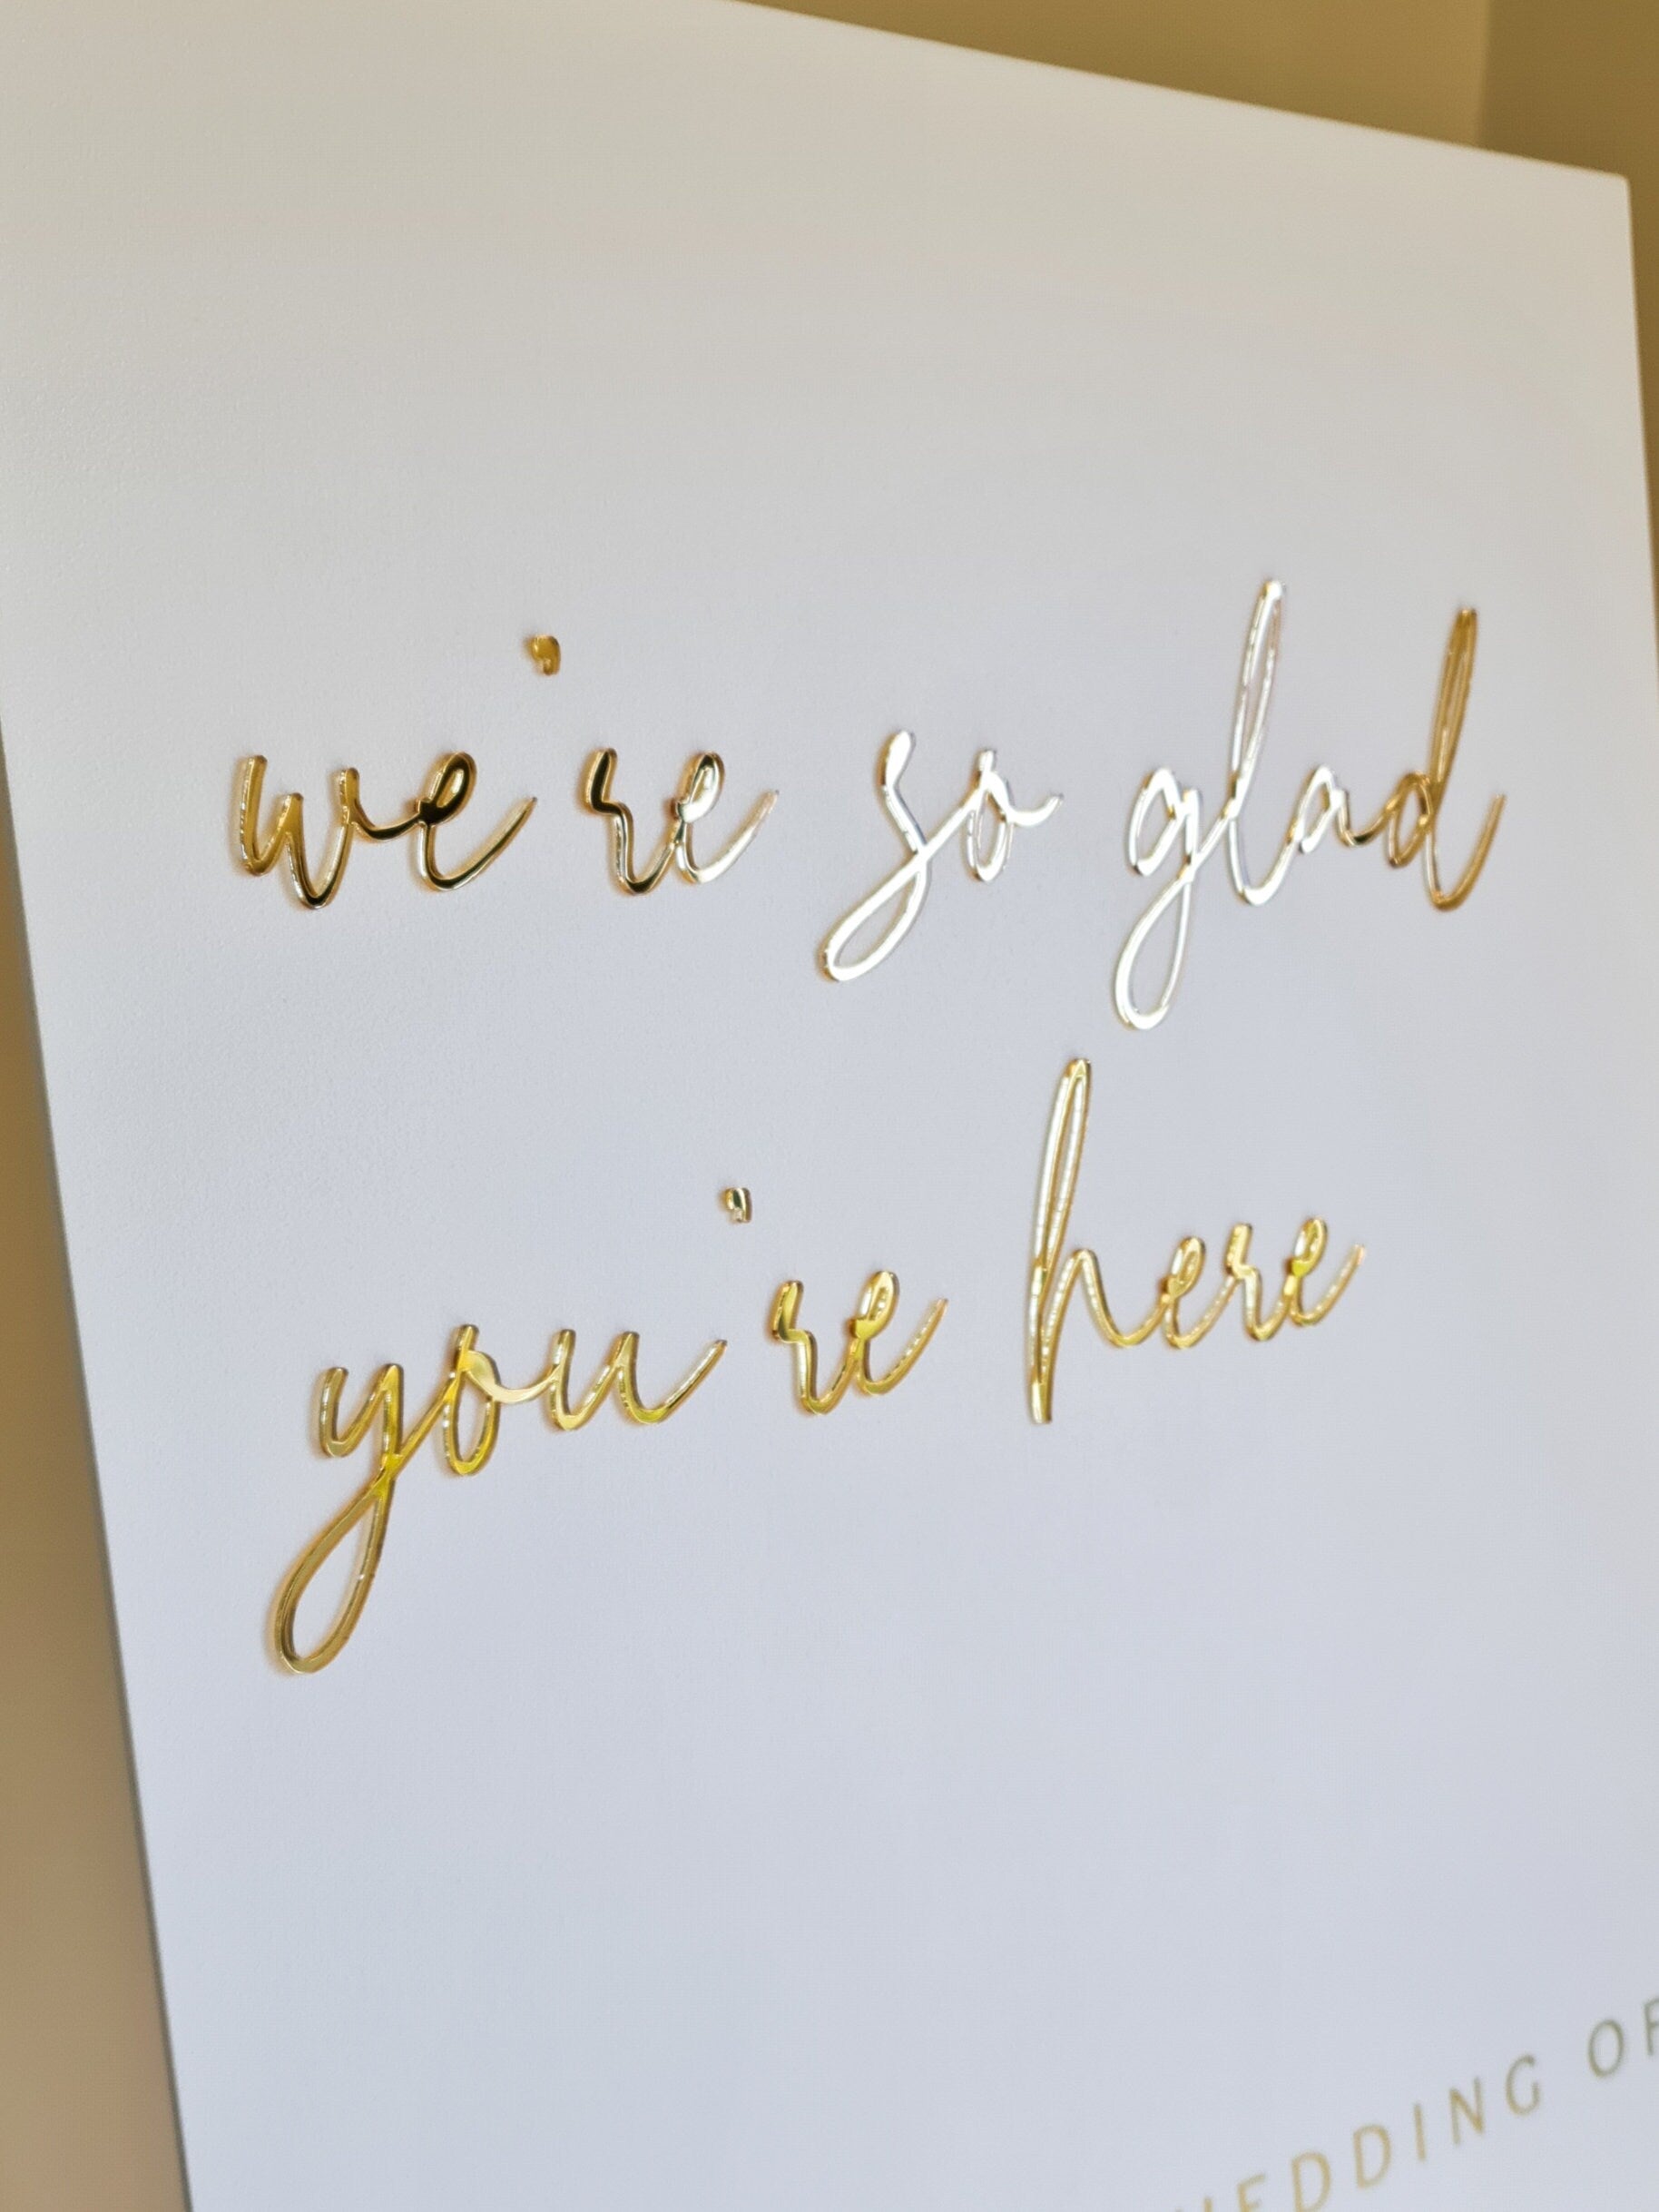 we're so glad
you're here
WEDDING OF